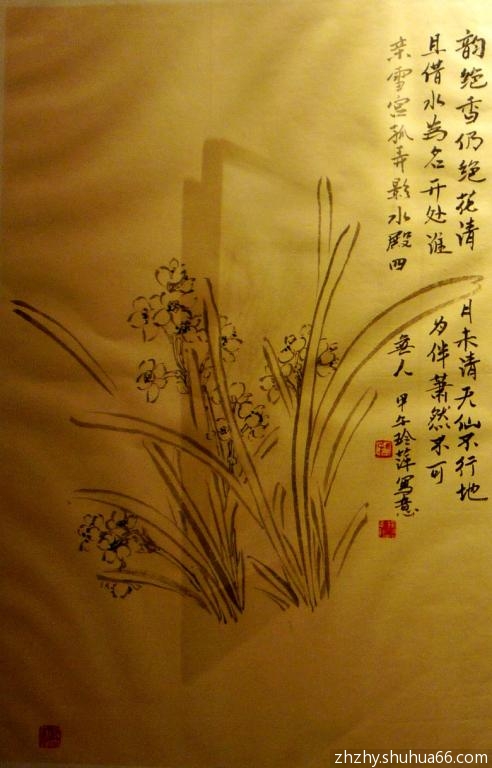 韵绝香仍绝花清月未清天仙不行地
且借水为名开处谁为伴蕭然不可
亲雪宫孤弄影水殿四無人
甲午玲萍寫意
zhzhy.shuhua66.com